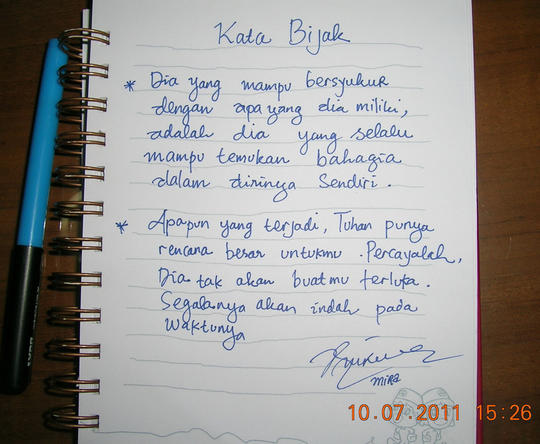 Kata Bijak
* Dia yang mampu bersyukur
dengan apa yang dia miliki,
adalah dia yang selalu
mampu temukan bahagia
dalam dirinya Sendiri.
* Apapun yang terjadi, Tuhan punya
rencana besar untukmu. Percayalah,
Dia tak akan buatmu terluka.
Segalanya akan indah pada
Waktunya
mira
10.07.2011 15:26